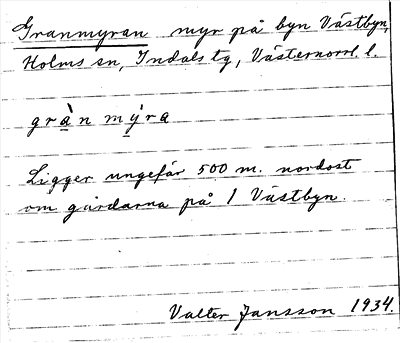 Granmyran myr på byn Västbyn,
Holms sn, Indals tg, Västernorrl. l.
gràn mýra
Ligger ungefär 500 m. nordost
om gårdarna på 1 Västbyn.
Valter Jansson 1934.